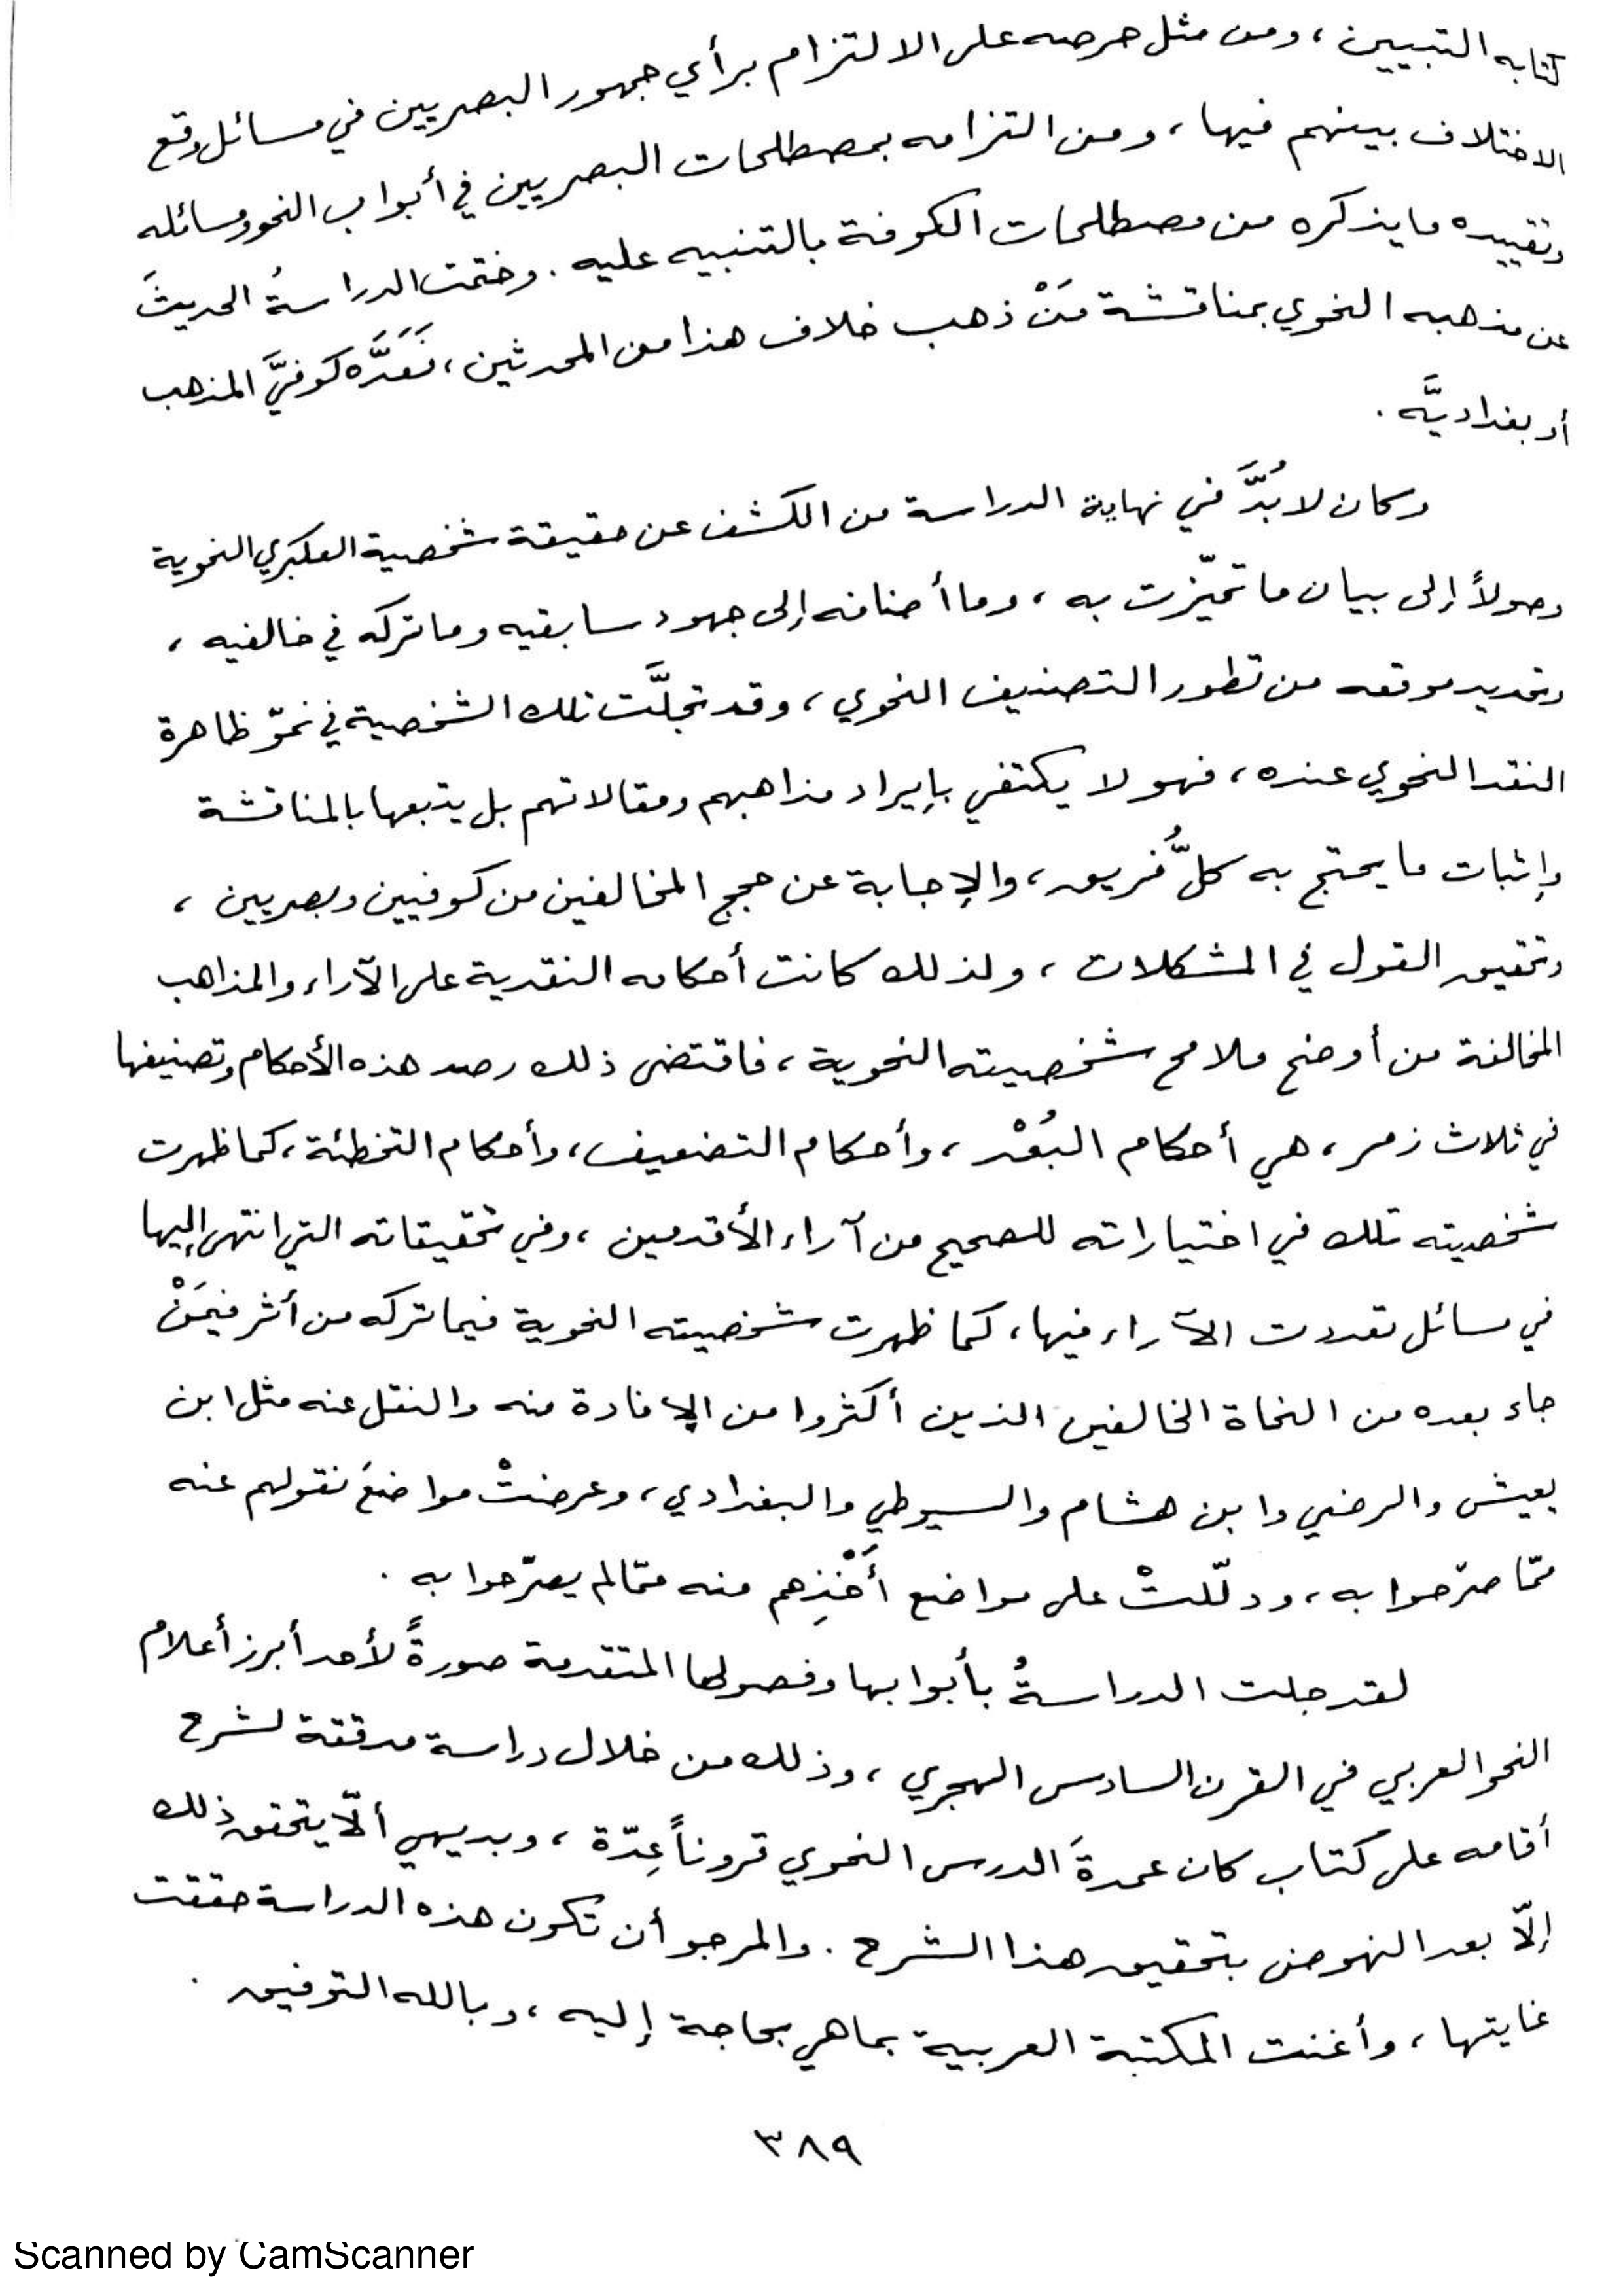 كتابه التبيين، ومن مثل حرصه على الالتزام برأي جمهور البصريين في مسائل وقع
الاختلاف بينهم فيها، ومن التزامه بمصطلحات البصريين في أبواب النحو ومسائله
وتقييده ما يذكره من مصطلحات الكوفة بالتنبيه عليه. وختمت الدراسةُ الحديثَ
عن مذهبه النحوي بمناقشة مَنْ ذهب خلاف هذا من المحدثين، فَعَدَّه كوفيَّ المذهب
أو بغداديَّه.
وكان لا بُدَّ في نهاية الدراسة من الكشف عن حقيقة شخصية العكبري النحوية
وصولاً إلى بيان ما تميّزت به، وما أضافه إلى جهود سابقيه وما تركه في خالفيه،
وتحديد موقعه من تطور التصنيف النحوي، وقد تجلَّت تلك الشخصية في نموّ ظاهرة
النقد النحوي عنده، فهو لا يكتفي بإيراد مذاهبهم ومقالاتهم بل يتبعها بالمناقشة
وإثبات ما يحتج به كلُّ فريق، والإجابة عن حجج المخالفين من كوفيين وبصريين،
وتحقيق القول في المشكلات، ولذلك كانت أحكامه النقدية على الآراء والمذاهب
المخالفة من أوضح ملامح شخصيته النحوية، فاقتضى ذلك رصد هذه الأحكام وتصنيفها
في ثلاث زمر، هي أحكام البُعْد، وأحكام التضعيف، وأحكام التخطئة، كما ظهرت
شخصيته تلك في اختياراته للصحيح من آراء الأقدمين، وفي تحقيقاته التي انتهى إليها
في مسائل تعددت الآراء فيها، كما ظهرت شخصيته النحوية فيما تركه من أثر فيمَنْ
جاء بعده من النحاة الخالفين الذين أكثروا من الإفادة منه والنقل عنه مثل ابن
يعيش والرضي وابن هشام والسيوطي والبغدادي، وعرضتْ مواضعَ نقولهم عنه
ممّا صرّحوا به، ودلّلتْ على مواضع أَخْذِهم منه ممّا لم يصرّحوا به.
لقد جلت الدراسةُ بأبوابها وفصولها المتقدمة صورةً لأحد أبرز أعلام
النحو العربي في القرن السادس الهجري، وذلك من خلال دراسة مدققة لشرح
أقامه على كتاب كان عمدةَ الدرس النحوي قروناً عِدّة، وبديهي ألّا يتحقق ذلك
إلّا بعد النهوض بتحقيق هذا الشرح. والمرجو أن تكون هذه الدراسة حققت
غايتها، وأغنت المكتبة العربية بما هي بحاجة إليه، وبالله التوفيق.
٣٨٩
Scanned by CamScanner